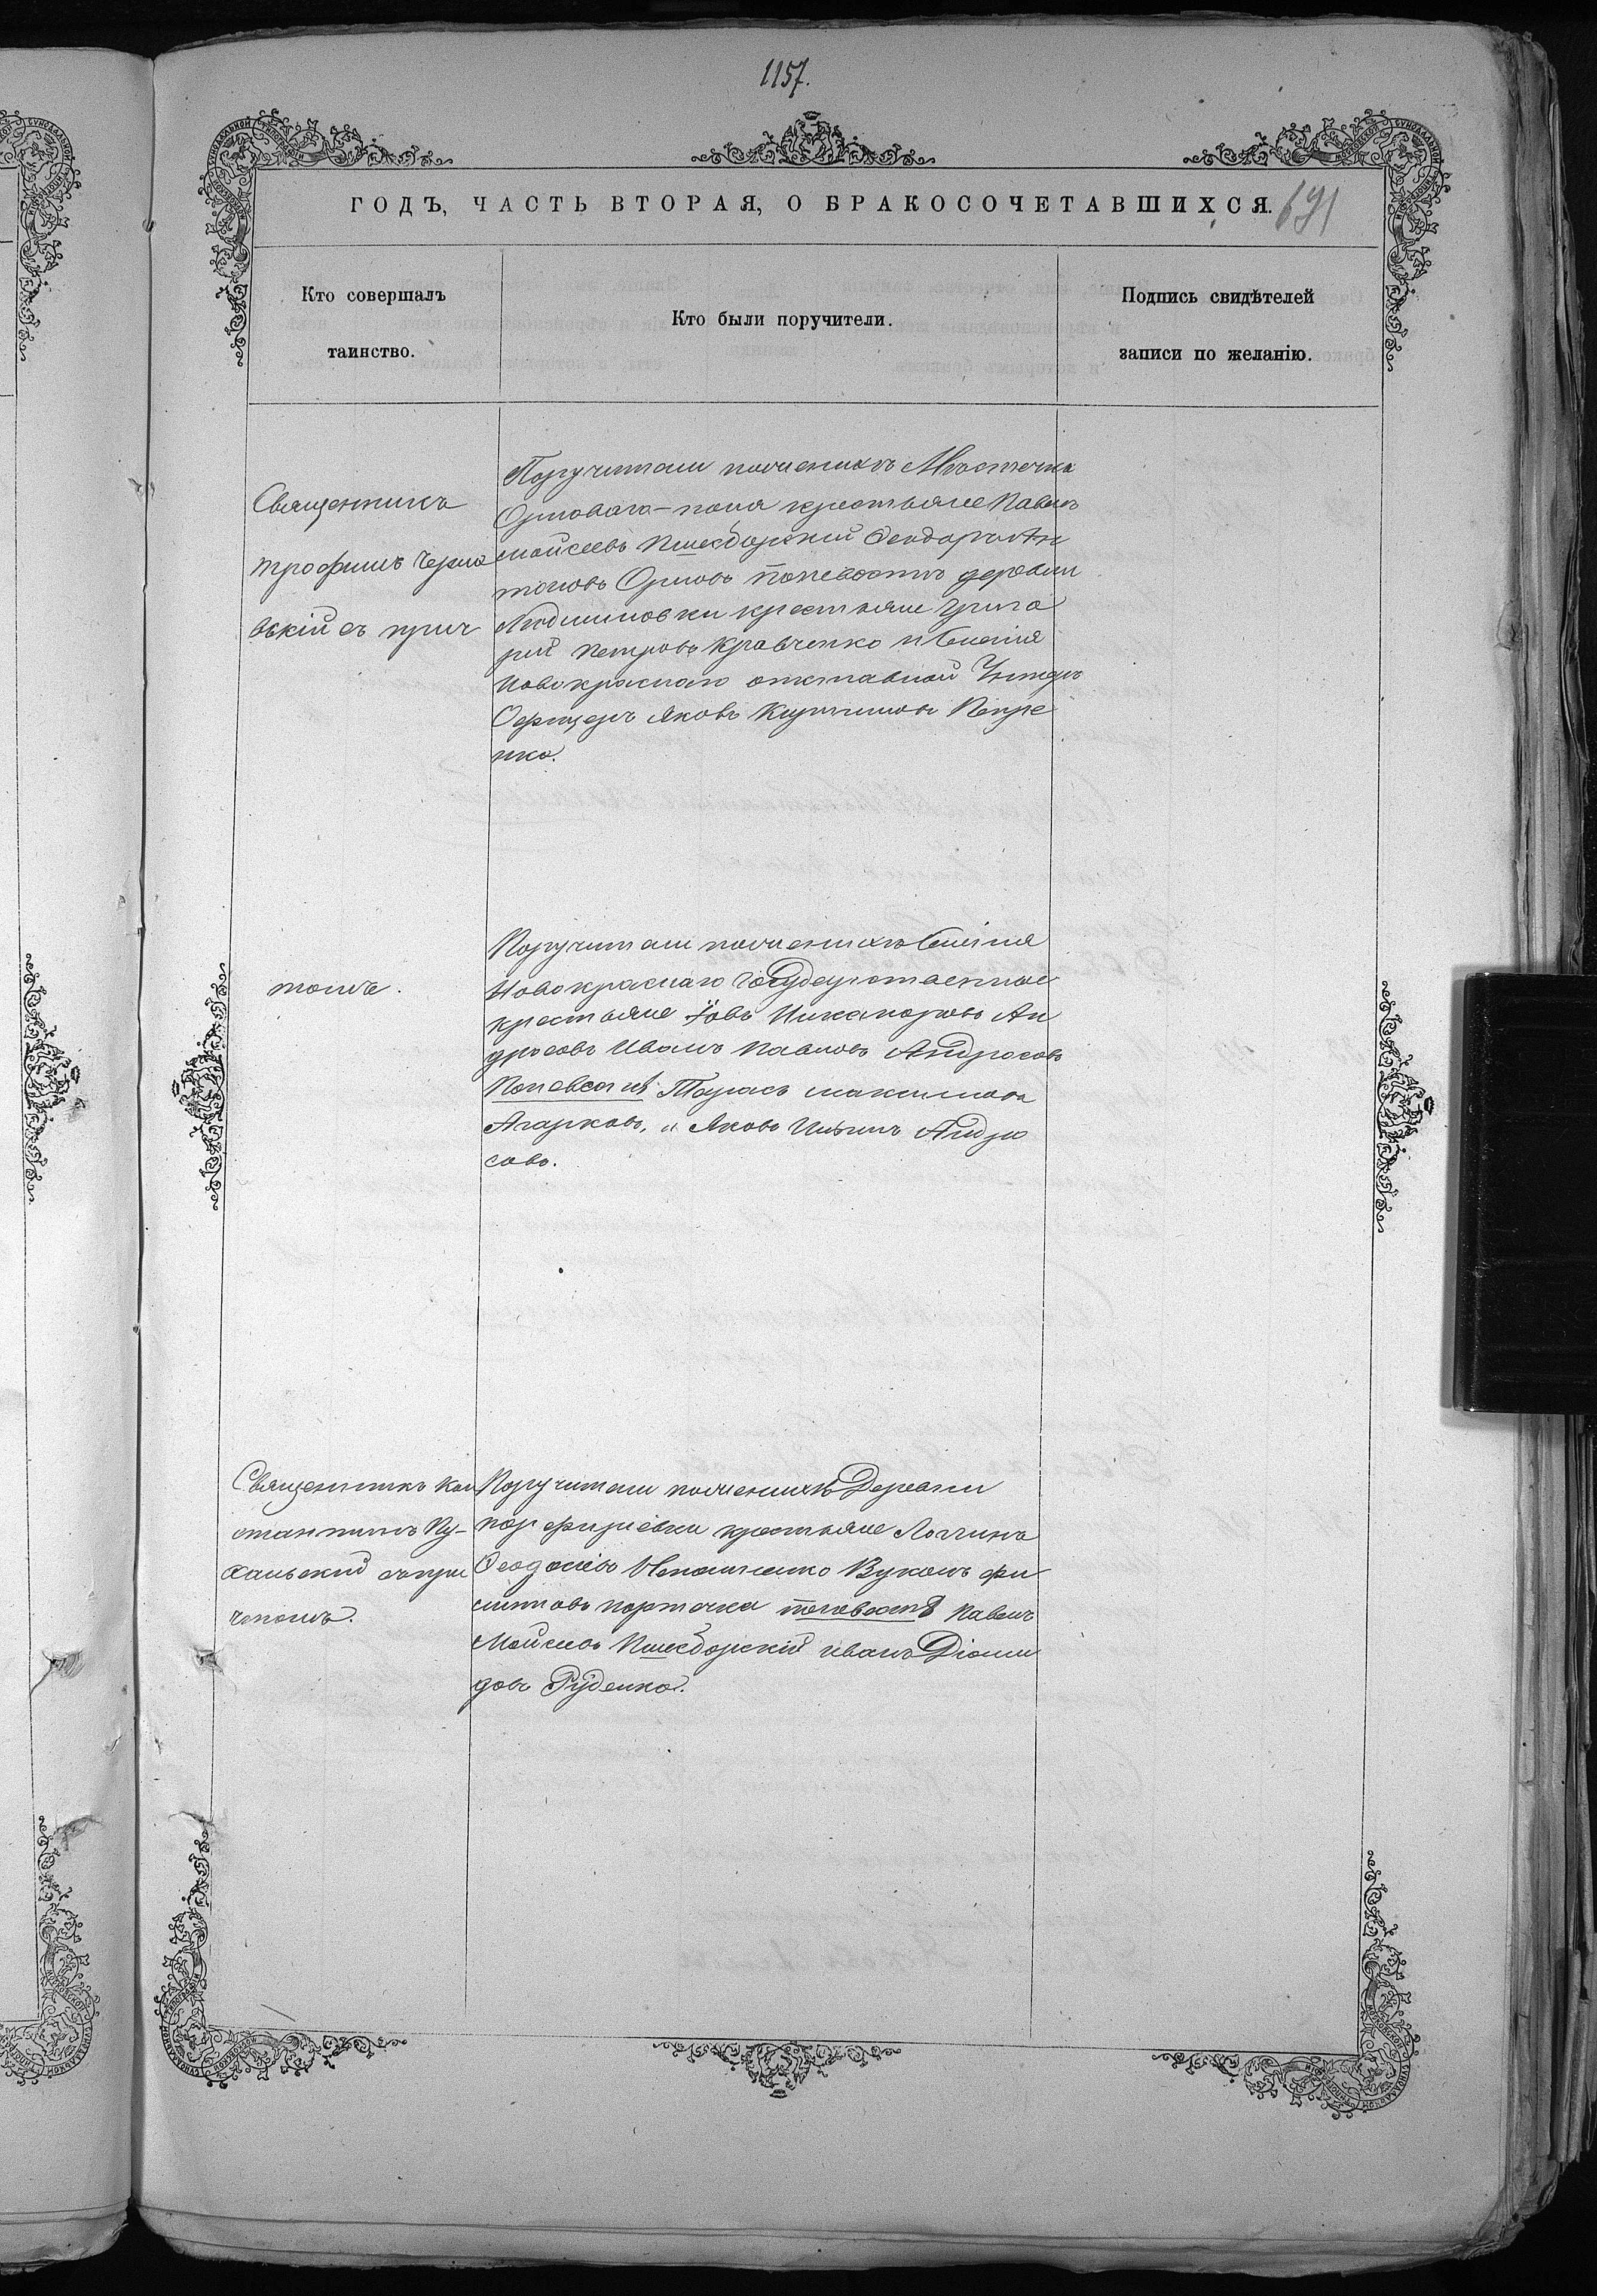 1157.
ГОДЪ, ЧАСТЬ ВТОРАЯ, О БРАКОСОЧЕТАВШИХСЯ.
691
Кто совершалъ
таинство.
Кто были поручители.
Подпись свидѣтелей
записи по желанію.
Священникъ
Трофимъ Черня
вскій съ прич
Поручители по женихѣ Мѣстечка
Орловаго-поля крестьяне Павелъ
Моисеевъ Феодоръ Ан
тоновъ Орловъ По невѣстѣ деревни
Людмиловки крестьяне Григо
рій Петровъ Кравченко и Селенія
Новокраснаго отставной Унтеръ
Офицеръ Яковъ Петре
нко.
тотъ же.
Поручители по женихѣ Селенія
Новокраснаго Государственные
крестьяне Іовъ Никаноровъ Ан
дросовъ Иванъ Павловъ Андросовъ
По невѣстѣ Тарасъ Максимовъ
Агарковъ, и Яковъ Ильинъ Андро
совъ.
Священникъ Кон
стантинъ Пу-
хальскій съ при
чтомъ.
Поручители по женихѣ Деревни
Порфиріевки крестьяне Логгинъ
Феодосіевъ Вуколъ Фи
липповъ по невѣстѣ Павелъ
Моисеевъ Иванъ Діоми
довъ Руденко.